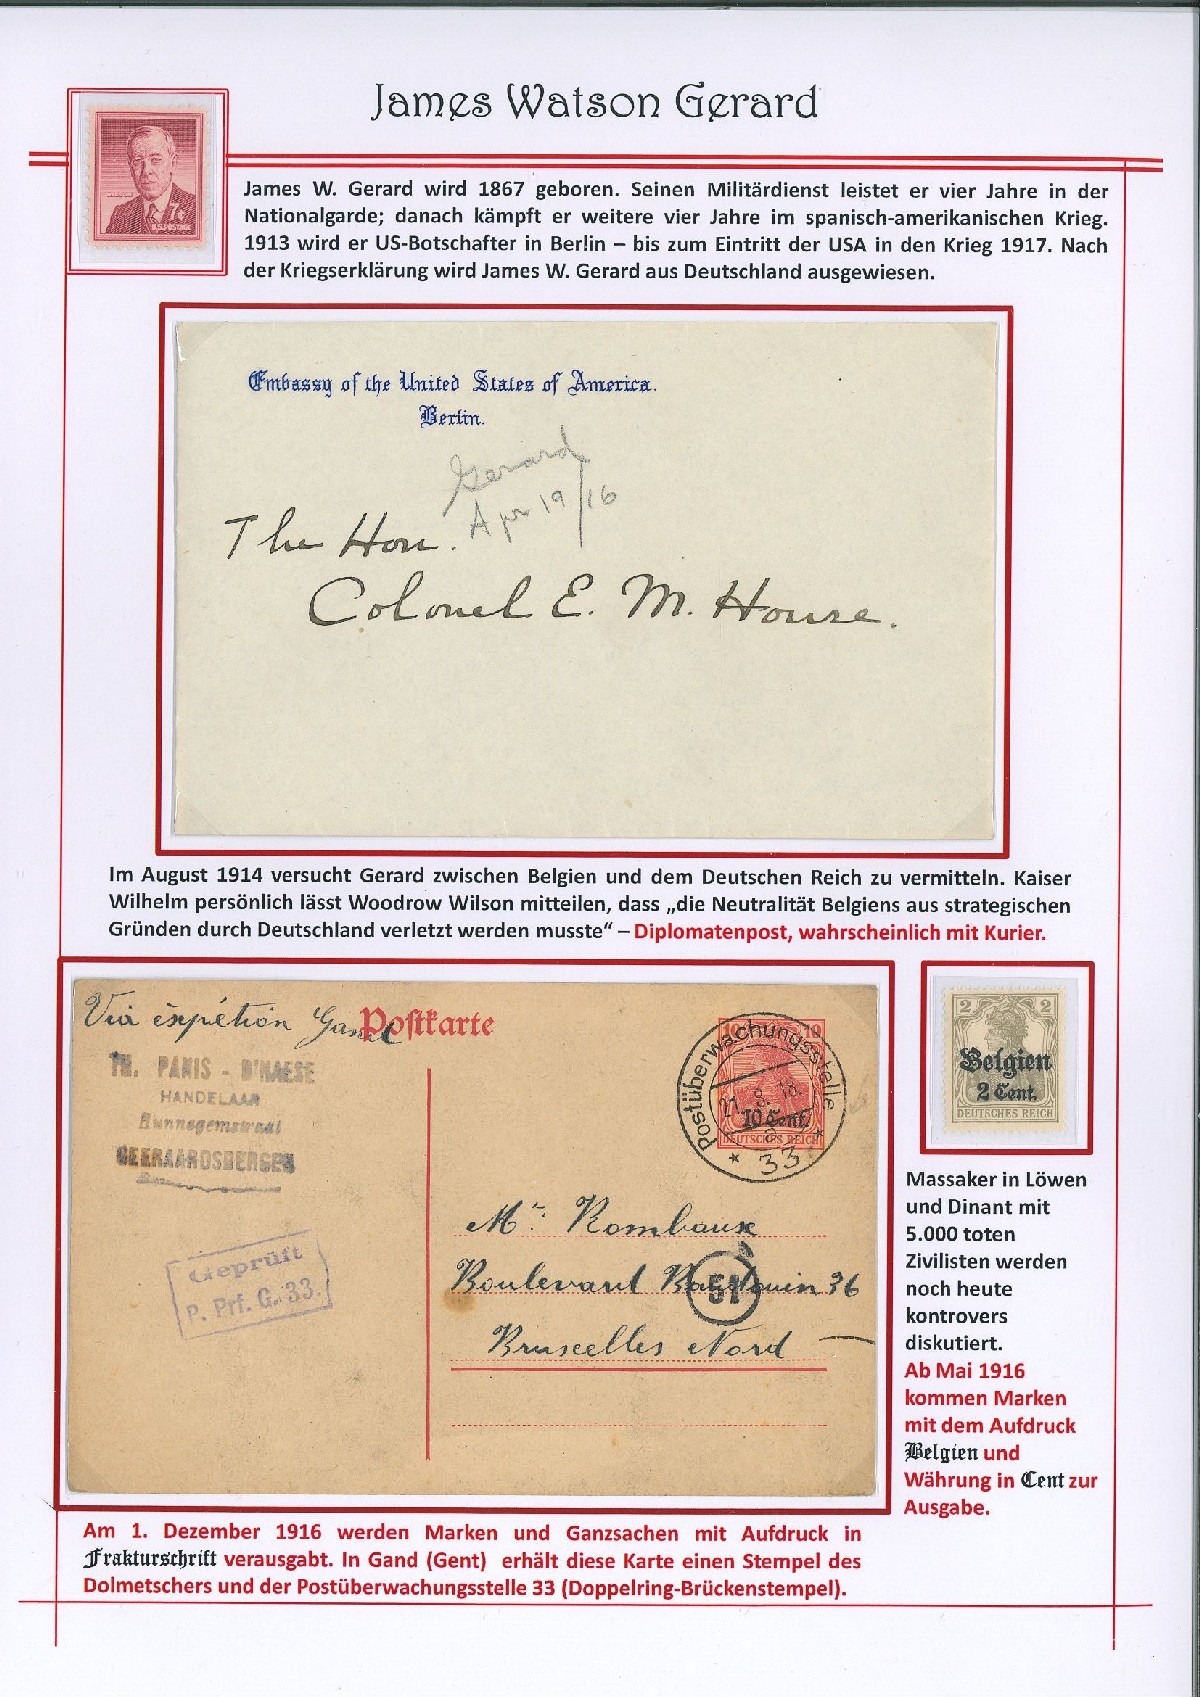 James Watson Gerard
7¢
U.S. POSTAGE
James W. Gerard wird 1867 geboren. Seinen Militärdienst leistet er vier Jahre in der
Nationalgarde; danach kämpft er weitere vier Jahre im spanisch-amerikanischen Krieg.
1913 wird er US-Botschafter in Berlin – bis zum Eintritt der USA in den Krieg 1917. Nach
der Kriegserklärung wird James W. Gerard aus Deutschland ausgewiesen.
Embassy of the United States of America.
Berlin.
Gerard
Apr 19/16
The Hon.
Colonel E. M. House.
Im August 1914 versucht Gerard zwischen Belgien und dem Deutschen Reich zu vermitteln. Kaiser
Wilhelm persönlich lässt Woodrow Wilson mitteilen, dass „die Neutralität Belgiens aus strategischen
Gründen durch Deutschland verletzt werden musste“ – Diplomatenpost, wahrscheinlich mit Kurier.
Via expétion
Postkarte
TH. PANIS - D'HAESE
HANDELAAR
Hunnegemstraat
GEERAARDSBERGEN
Geprüft
P. Prf. G. 33.
10 10
Postüberwachungsstelle
21. 8. 18.
10 Cent.
DEUTSCHES REICH
* 33 *
Mr. Rombaux
Boulevard Baudouin 36
51
Bruxelles Nord
2 2
Belgien
2 Cent.
DEUTSCHES REICH
Massaker in Löwen
und Dinant mit
5.000 toten
Zivilisten werden
noch heute
kontrovers
diskutiert.
Ab Mai 1916
kommen Marken
mit dem Aufdruck
Belgien und
Währung in Cent zur
Ausgabe.
Am 1. Dezember 1916 werden Marken und Ganzsachen mit Aufdruck in
Frakturschrift verausgabt. In Gand (Gent) erhält diese Karte einen Stempel des
Dolmetschers und der Postüberwachungsstelle 33 (Doppelring-Brückenstempel).